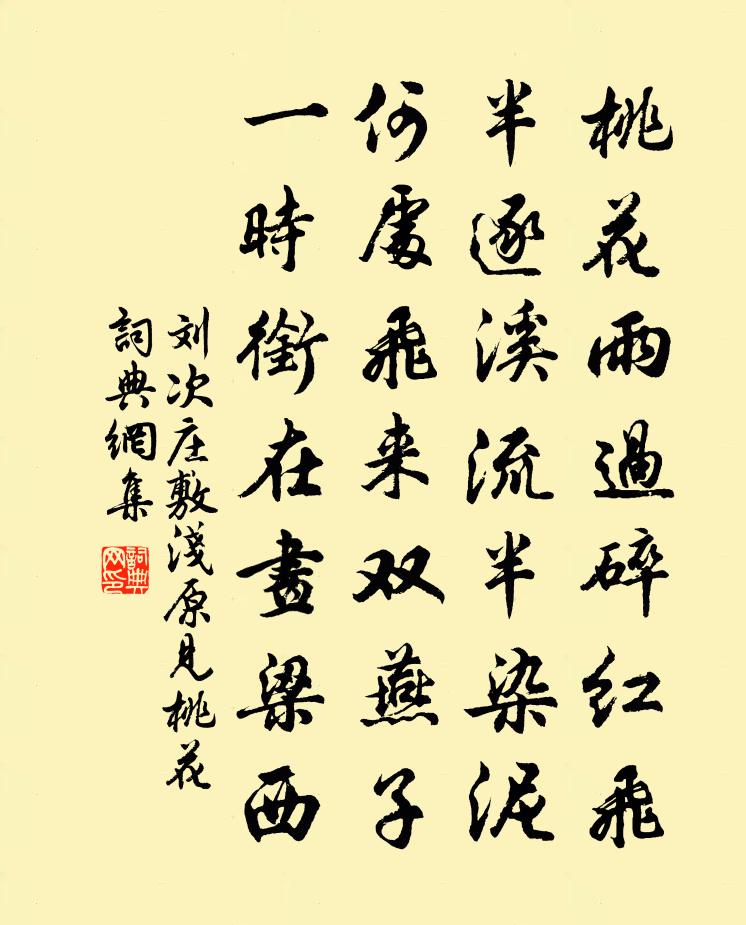 桃花雨過碎紅飛
半逐溪流半染泥
何處飛来双燕子
一時銜在畫梁西
刘次庄敷淺原見桃花
詞典網集
詞典
网印